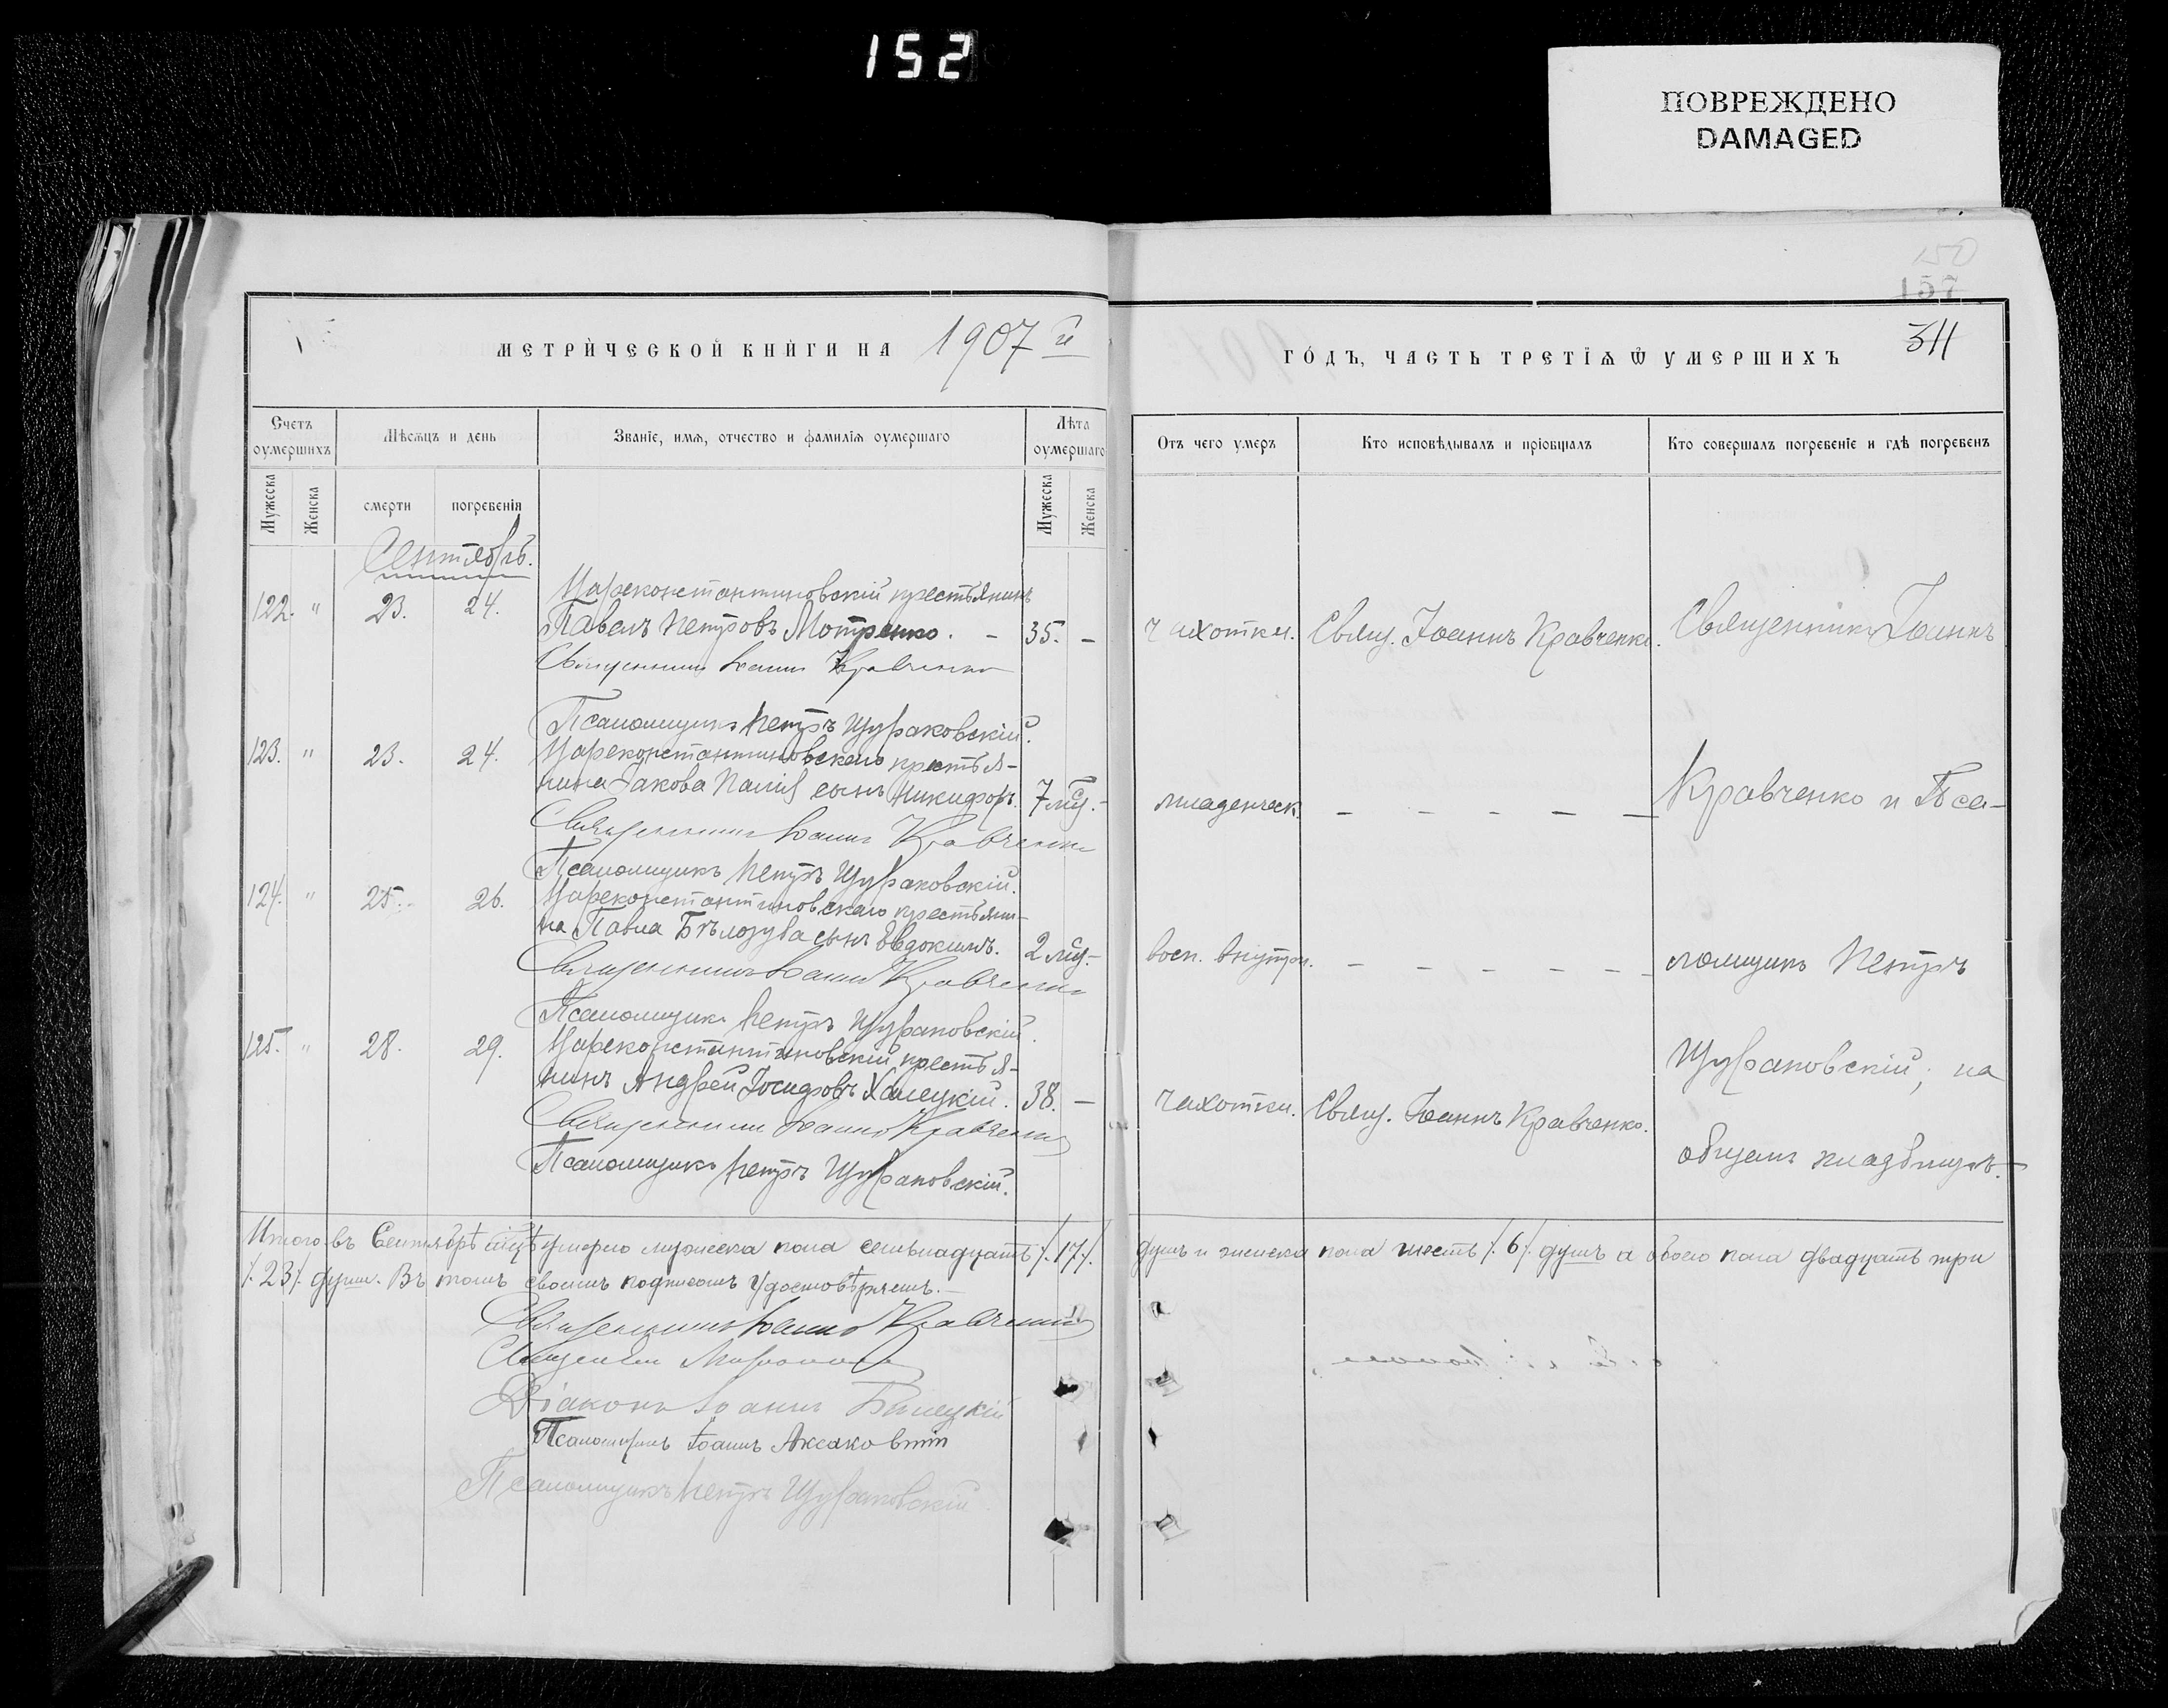 152
ПОВРЕЖДЕНО
DAMAGED
150
157
311
МЕТРИЧЕСКОЙ КНИГИ НА 1907 й
ГОДЪ, ЧАСТЬ ТРЕТІѦ Ѿ УМЕРШИХЪ
Счетъ оумершихъ
Мѣсѧцъ и день
Званіе, имѧ, отчество и фамиліѧ оумершаго
Лѣта оумершаго
Мужеска
Женска
смерти
погребеніѧ
Мужеска
Женска
Отъ чего умеръ
Кто исповѣдывалъ и пріобщалъ
Кто совершалъ погребеніе и гдѣ погребенъ
Сентябрь.
Цареконстантиновскій крестьянинъ
122. " 23. 24. Павелъ Петровъ Мотренко. - 35. - чахотки. Свящ. Іоаннъ Кравченко. Священникъ Іоаннъ
Священникъ Іоаннъ Кравченко
Псаломщикъ Петръ Щураковскій.
123. " 23. 24. Цареконстантиновскаго крестья-
нина Іакова сынъ Никифоръ. 7 мц. - младенческ. - - - - - Кравченко и Пса-
Священникъ Іоаннъ Кравченко
Псаломщикъ Петръ Щураковскій.
124. " 25. 26. Цареконстантиновскаго крестьяни-
на Павла Бѣлозуба сынъ Евдокимъ. 2 мц. - восп. внутрн. - - - - - - ломщикъ Петръ
Священникъ Іоаннъ Кравченко
Псаломщикъ Петръ Щураковскій.
125. " 28. 29. Цареконстантиновскій крестья-
нинъ Андрей Іосифовъ Халецкій. 38. - чахотки. Свящ. Іоаннъ Кравченко. Щураковскій; на
Священникъ Іоаннъ Кравченко
Псаломщикъ Петръ Щураковскій.
общемъ кладбищѣ.-
Итого въ Сентябрѣ мцѣ умерло мужеска пола семьнадцать /.17./ душъ и женска пола шесть /.6./ душъ а обоего пола двадцать три
/.23/. души. Въ томъ своимъ подписомъ удостовѣряемъ.-
Священникъ Іоаннъ Кравченко
Діаконъ Іоаннъ Билецкій
Псаломщикъ Іоаннъ
Псаломщикъ Петръ Щураковскій.